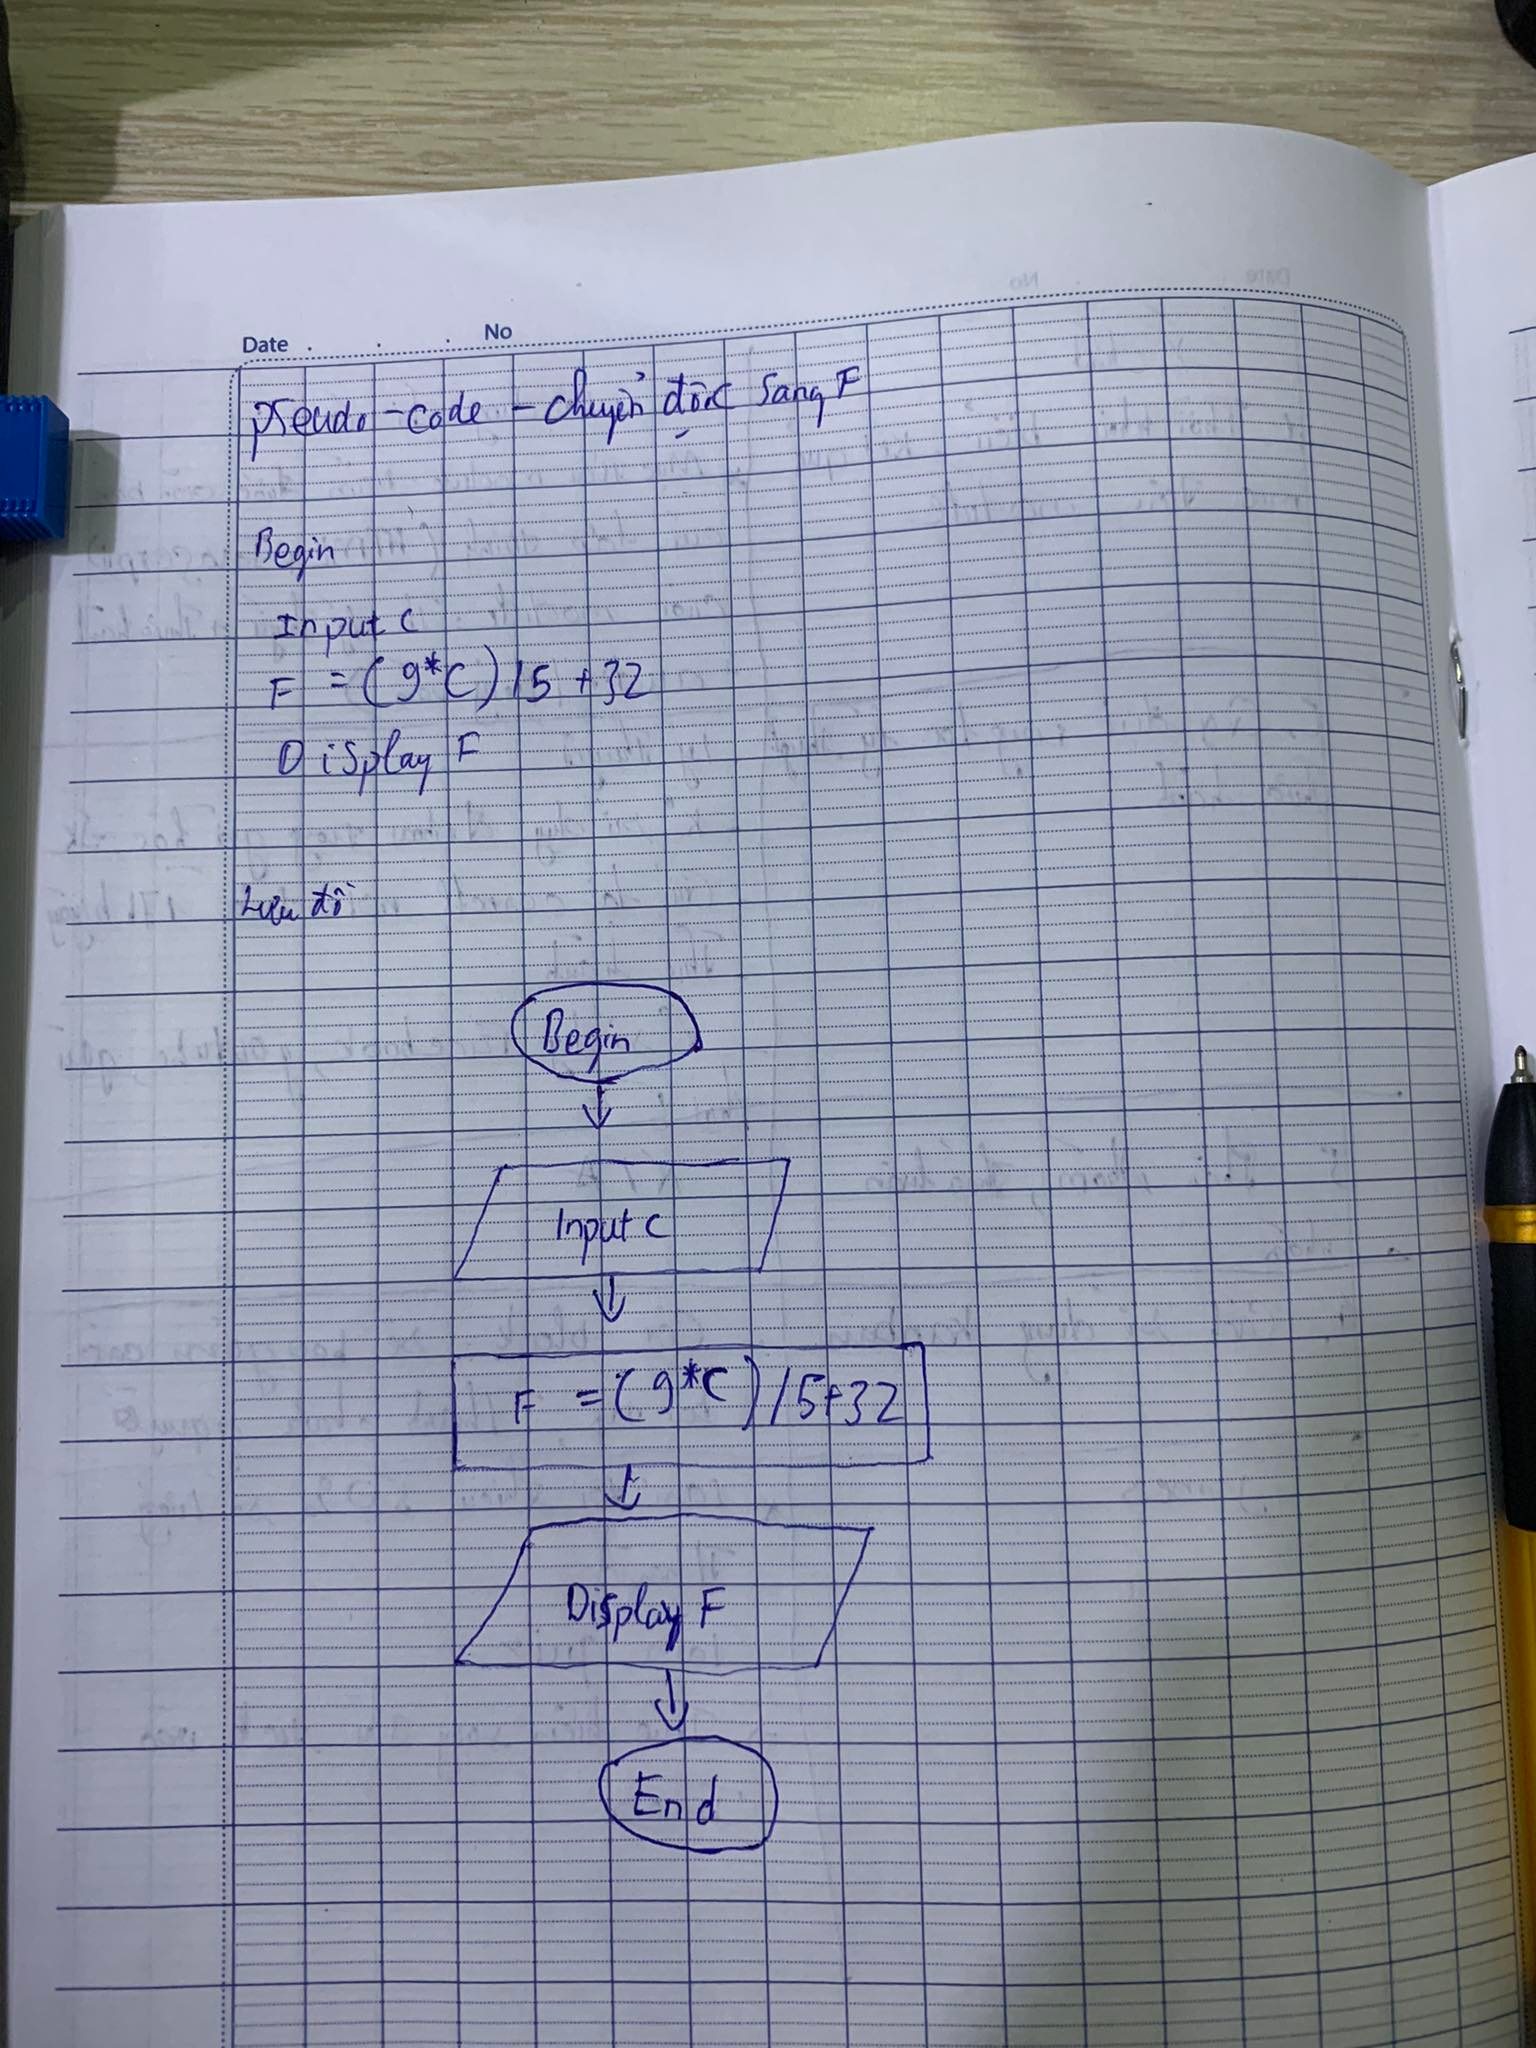 Date . . . No
Pseudo-code - chuyển đổi C sang F
Begin
Input C
F = (9*C)/5 +32
Display F
Lưu đồ
Begin
Input C
F = (9*C)/5+32
Display F
End